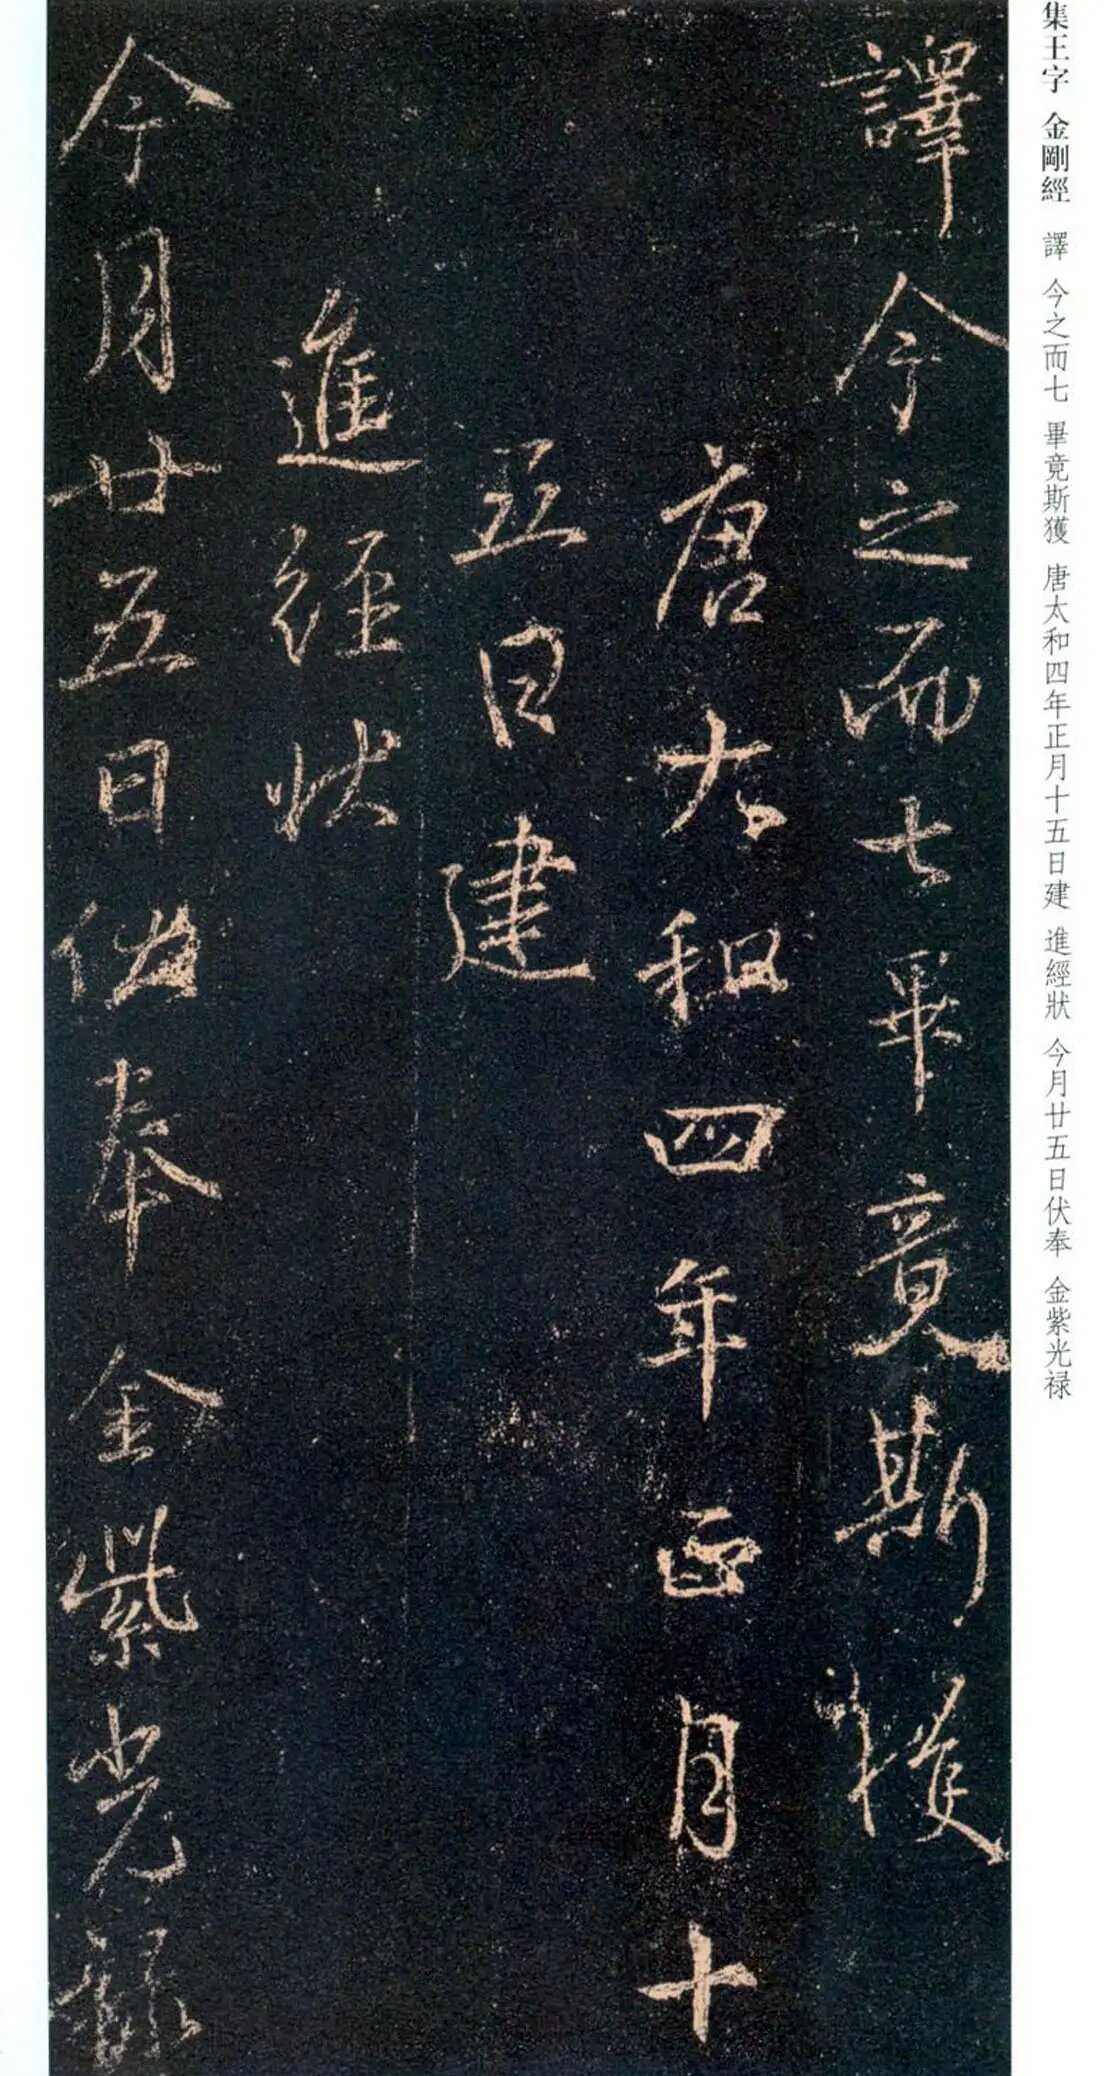 集王字 金剛經 譯 今之而七 畢竟斯獲 唐太和四年正月十五日建 進經狀 今月廿五日伏奉 金紫光禄
譯今之而七畢竟斯獲
唐太和四年正月十
五日建
進經狀
今月廿五日伏奉金紫光禄